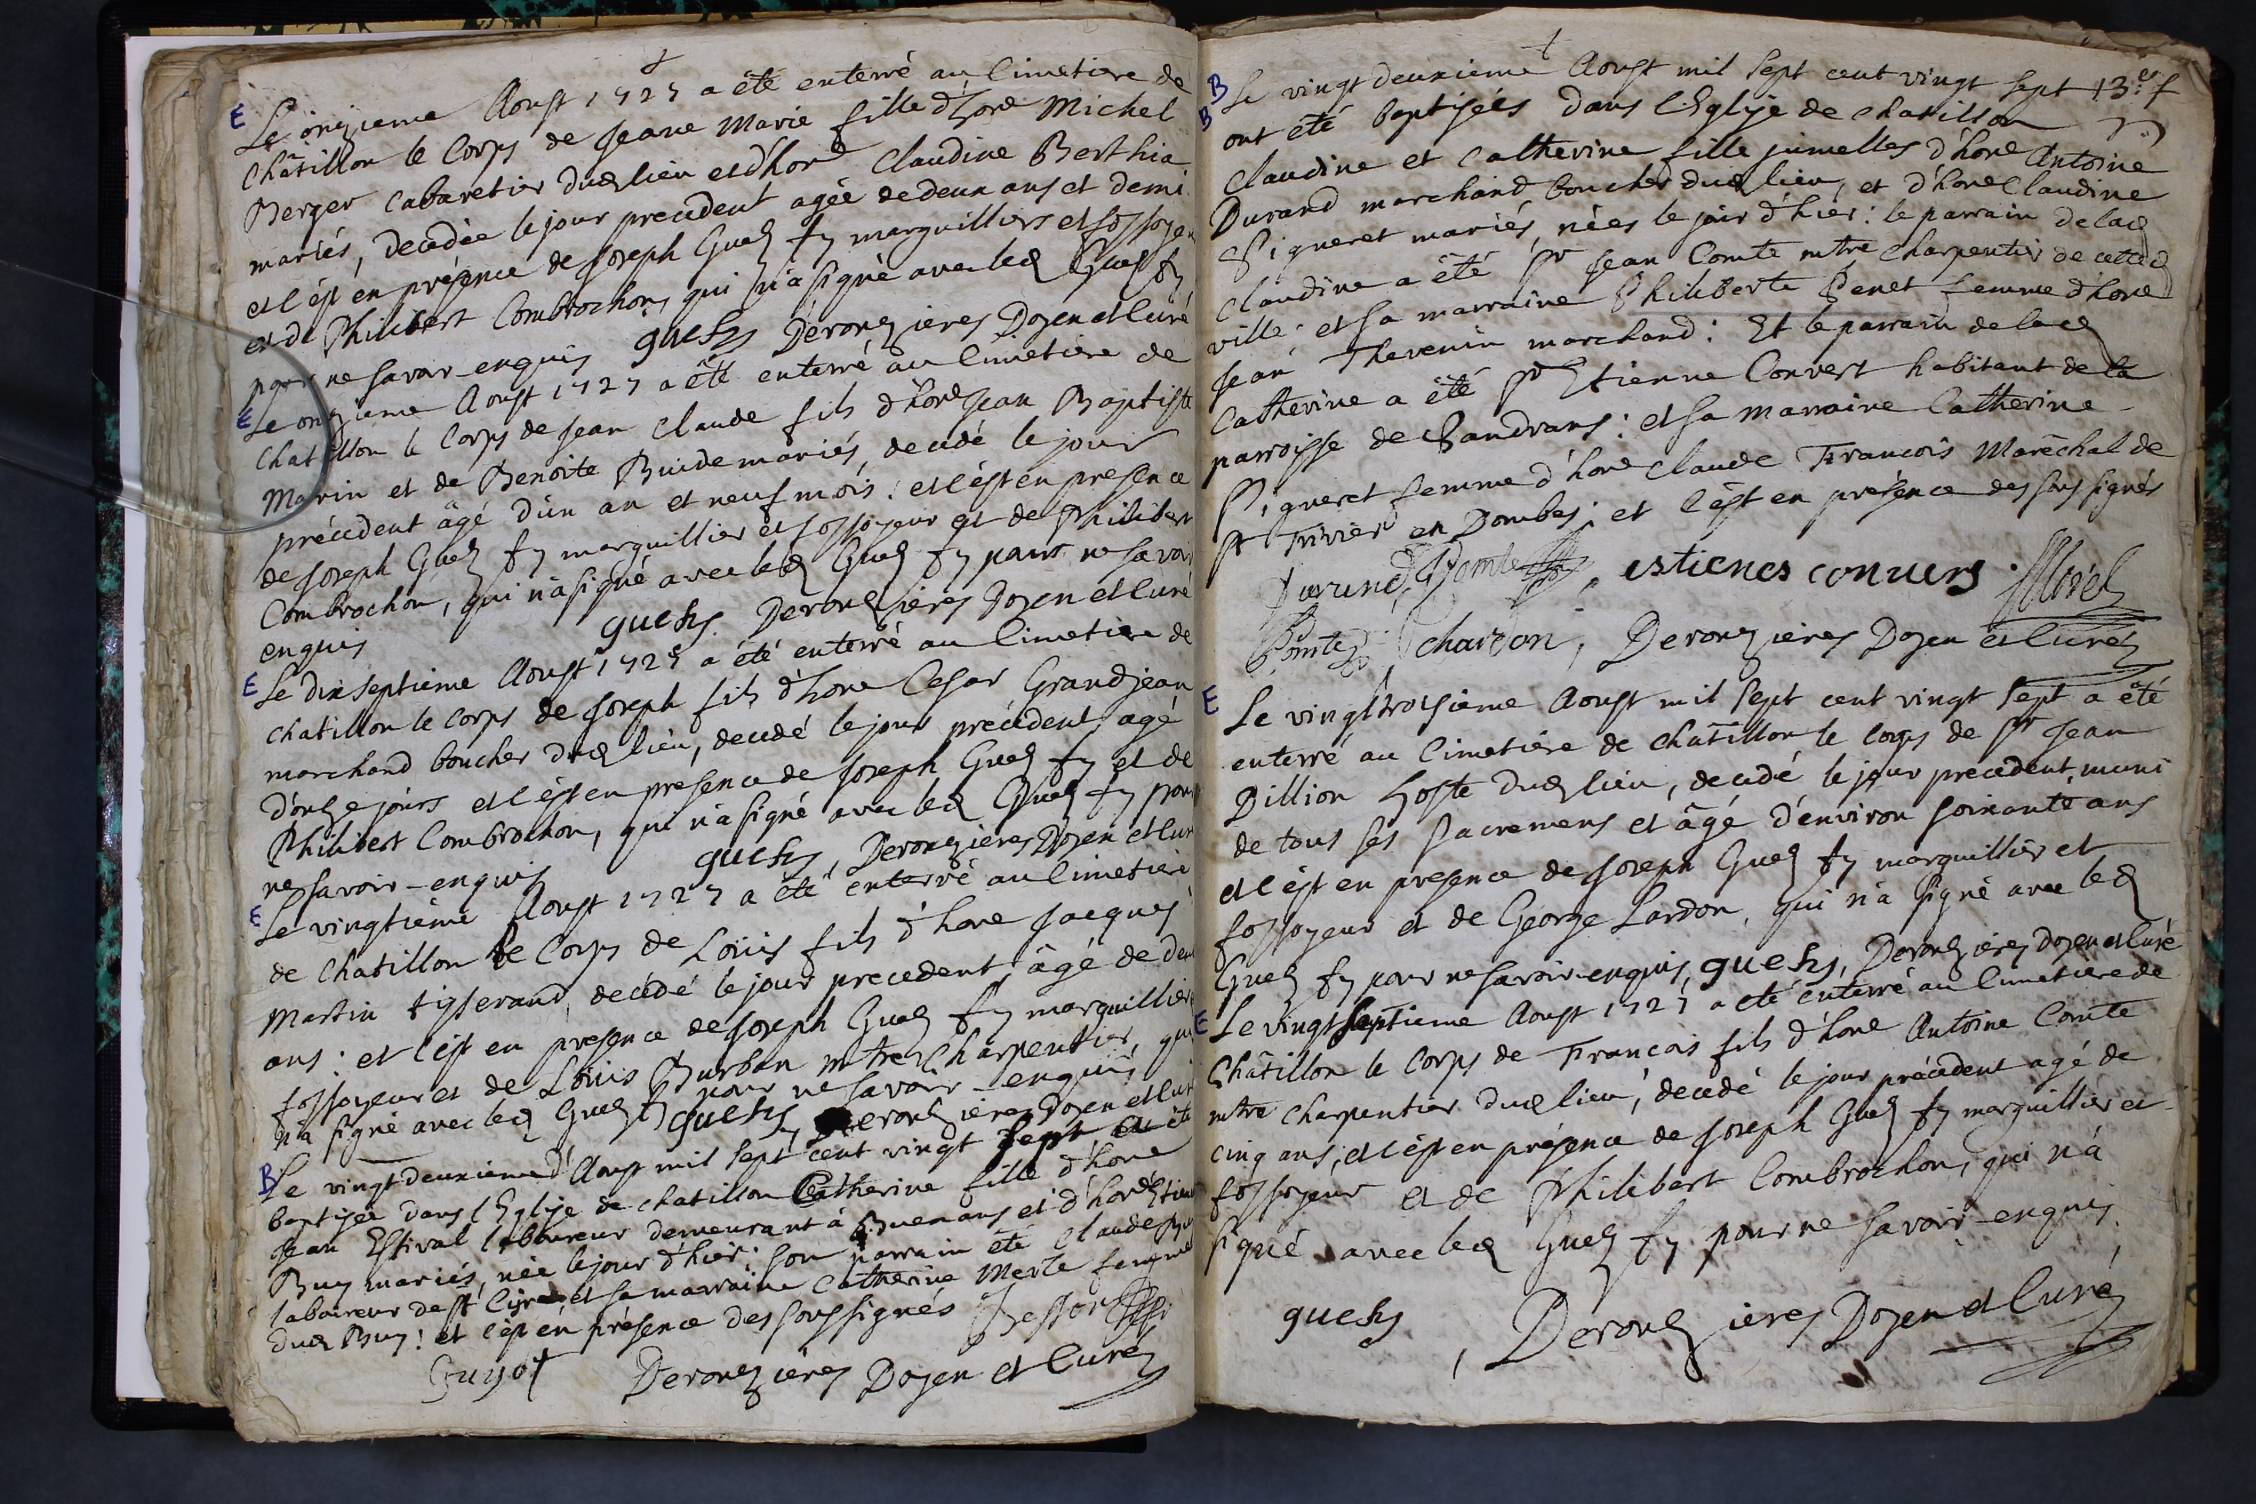 E Le onzieme Aoust 1727 a êtê enterré au Cimetiere de
Châtillon le Corps de Jeane Marie fille d'hone Michel
Berger cabaretier dud lieu et d'hone Claudine Berthia
mariés, decedée le jour precedent agée de deux ans et demi
et c'est en présence de Joseph Gued fy marguilliers et fossoyeu
et de Philibert Combrochon, qui n'a signé avec led Gued fy
pour ne savoir-enquis guesy Derouzieres Doyen et Curé
E Le onzieme Aoust 1727 a êté enterré au Cimetiere de
Chatillon le Corps de Jean Claude fils d'hone Jean Baptiste
Marin et de Benoite Buide mariés, decedé le jour
précédent âgé d'un an et neuf mois : et c'est en presence
de Joseph Gued fy marguillier et fossoyeur et de Philibert
Combrochon, qui n'a signé avec led Gued fy pour ne savoir
enquis guesy. Derouzieres Doyen et Curé
E Le dix septieme Aoust 1727 a été enterré au Cimetiere de
chatillon le corps de Joseph fils d'hone Cesar Grandjean
marchand boucher dud lieu, decedé le jour précédent agé
d'onze jours et c'est en presence de Joseph Gued fy et de
Philibert Combrochon, qui n'a signé avec led Gued fy pour
ne savoir-enquis guesy, Derouzieres Doyen et Cur
E Le vingtiême Aoust 1727 a été enterré au Cimetiere
de Chatillon le Corps de Loüis fils d'hone Jacques
Martin tisserand, decédé le jour precedent, âgé de deu
ans : et c'est en presence de Joseph Gued fy marguillier
fossoyeur et de Loüis Burban mtre Charpentier, qui
n'a signé avec led Gued fy pour ne savoir-enquis
guesy, Derouzieres Doyen et Cur
B Le vingt deuxieme Aoust mil sept cent vingt sept a été
baptisée dans l'Eglise de chatillon Catherine fille d'hone
Jean Estival laboureur demeurant à Buenans et d'hone Etien
Buy mariés, née le jour d'hier : son parrain été Claude Buy
laboureur de St Cyr et sa marraine Catherine Merle femme
dud Buy : et c'est en présence des soussignés
Guyot Derouzieres Doyen et Curé
B Le vingt deuxieme Aoust mil sept cent vingt sept 13e f
B ont été baptisées dans l'Eglise de chatillon
Claudine et Catherine fille jumelles d'hone Antoine
Durand marchand boucher dud lieu, et d'hone Claudine
Pigneret mariés, nées le jour d'hier : le parrain de lad
Claudine a êté Sr Jean Comte mtre Charpentier de cetted
ville : et sa marraine Philiberte Penet femme d'hone
Jean Thevenin marchand : Et le parrain de lad
Catherine a êté Sr Etienne Convert habitant de la
parroisse de Sandrans : et sa marraine Catherine
Pigneret femme d'hone Claude François Maréchal de
St Trivier en Dombes ; et c'est en présence des soussignés
Durand, J Comte estienes convers
Comte Chardon, Derouzieres Doyen et Curé
E Le vingt troisieme Aoust mil sept cent vingt sept a êté
enterré au Cimetiére de châtillon le corps de Sr Jean
Billion hoste dud lieu, decedé le jour precedent, muni
de tous ses sacremens et âgé d'environ soixante ans
et c'est en presence de Joseph Gued fy marguillier et
fossoyeur et de George Lardon, qui n'a signé avec led
Gued fy pour ne savoir-enquis, guesy, Derouzieres doyen et Curé
E Le vingt septieme Aoust 1727 a eté enterré au Cimetiere de
Châtillon le Corps de François fils d'hone Antoine Comte
mtre charpentier dud lieu, decedé le jour précédent agé de
cinq ans, et c'est en présence de Joseph Gued fy marguillier et
fossoyeur et de Philibert Combrochon, qui n'a
signé avec led Gued fy pour ne savoir-enquis
guesy, Derouzieres Doyen et Curé